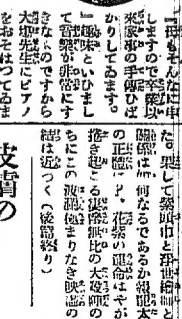 『母もそんなに申
しますので卒業以
來家事の手傳ひば
かりしてゐます。
『趣味といひまし
て音樂が非常にす
きなものですから
大塚先生にピアノ
をおそはつてゐま
た。果して紫頭巾と浮世繪師と
の關係は如何なるであるか
の正體は?。花紫の運命はやが
捲き起こる凄慘無比の大殺陣の
ちにこの波瀾極まりなき映画の
結は近づく(後篇終り)
皮膚の